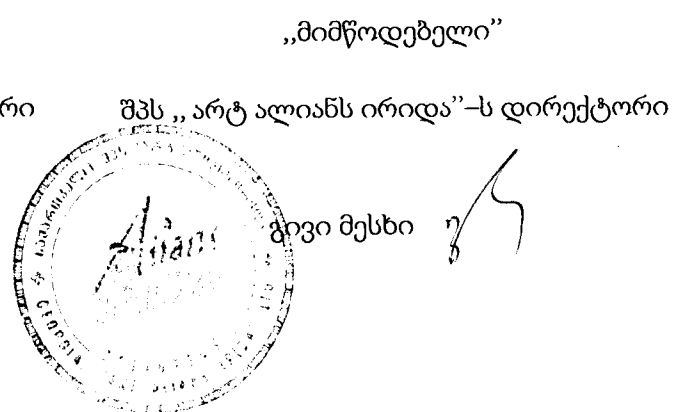 ,,მიმწოდებელი”
რი შპს ,, არტ ალიანს ირიდა”–ს დირექტორი
გივი მესხი
GEORGIA